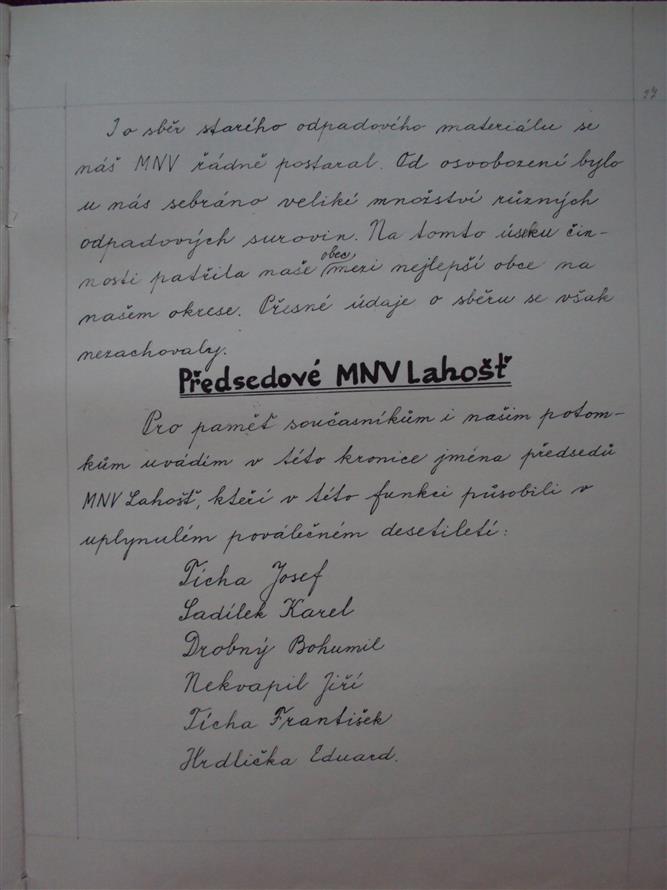 27
I o sběr starého odpadového materiálu se
náš MNV řádně postaral. Od osvobození bylo
u nás sebráno veliké množství různých
odpadových surovin. Na tomto úseku čin-
nosti patřila naše obec mezi nejlepší obce na
našem okrese. Přesné údaje o sběru se však
nezachovaly.
Předsedové MNV Lahošť
Pro paměť současníkům i našim potom-
kům uvádím v této kronice jména předsedů
MNV Lahošť, kteří v této funkci působili v
uplynulém poválečném desetiletí:
Tícha Josef
Sadílek Karel
Drobný Bohumil
Nekvapil Jiří
Tícha František
Hrdlička Eduard.